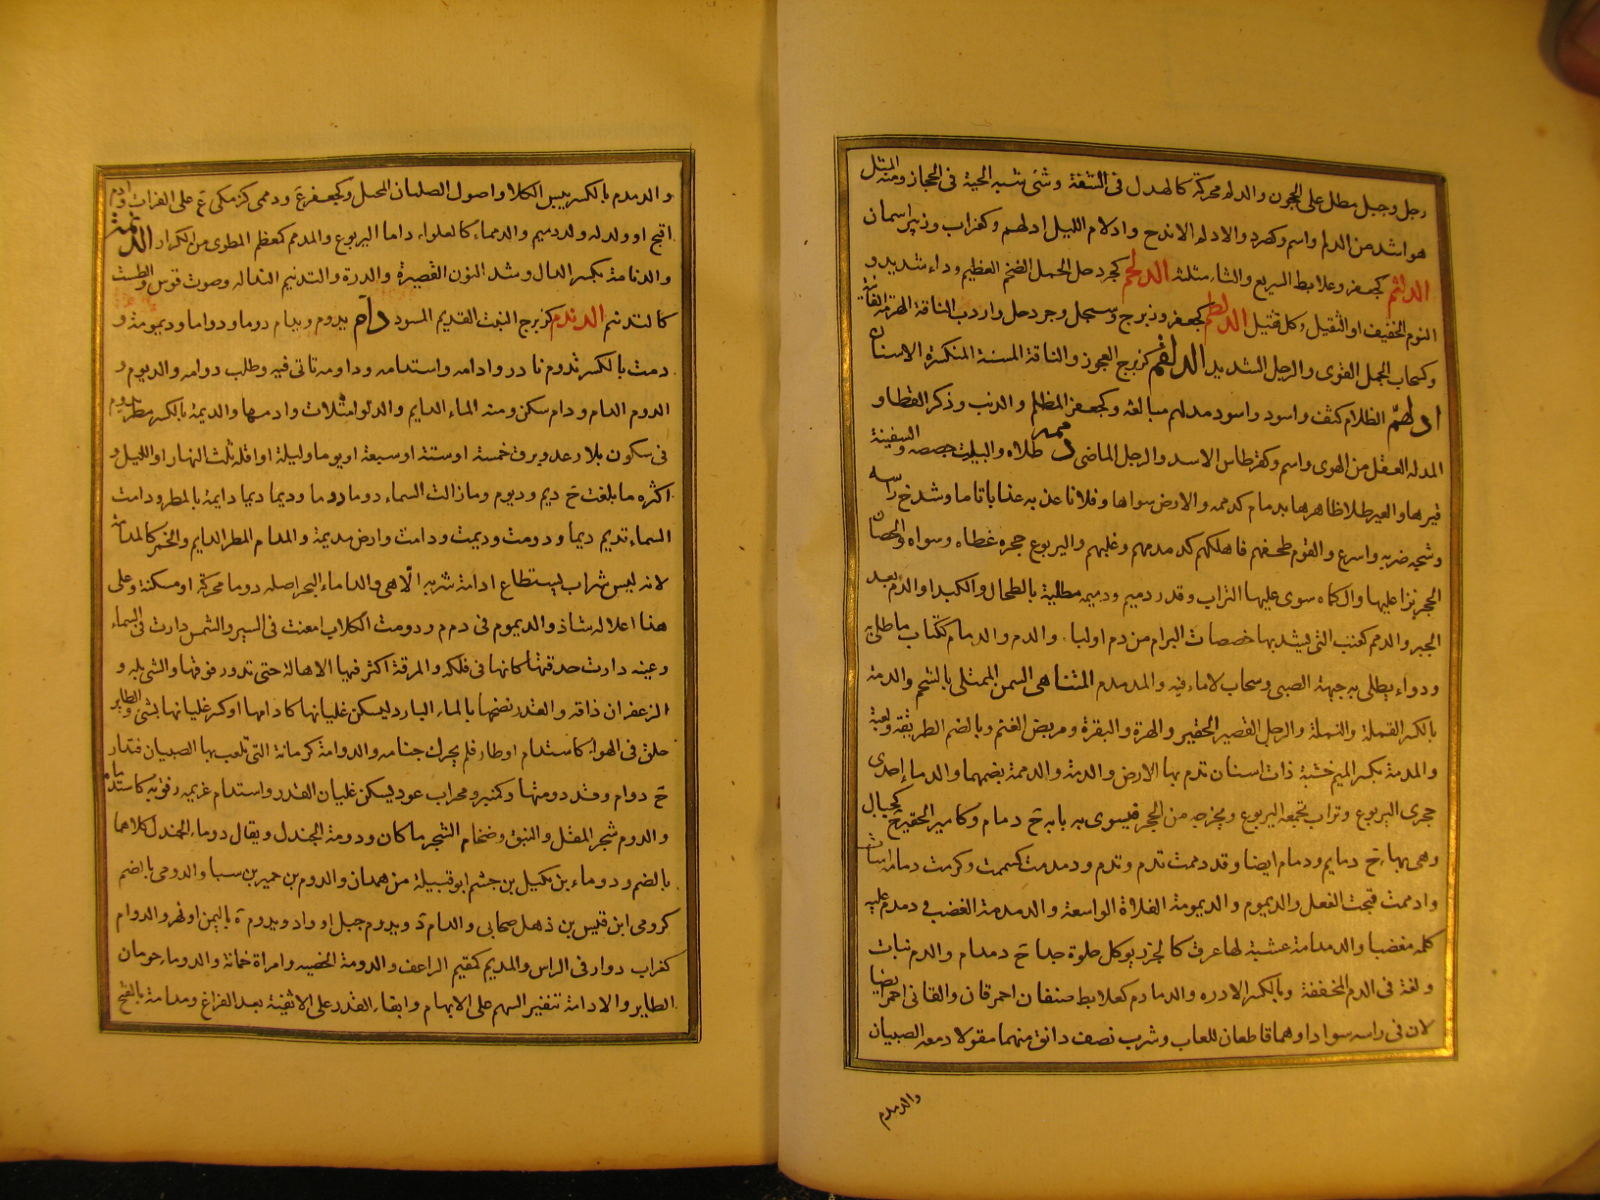 رجل وجبل مطل على الحجون والدلم محركة كالهدل فى الشفة وشئ شبه الحية فى الحجاز ومنه المثل
هو اشد من الدلم واسم وكصرد والادلم الاندح وادلام الليل ادلهم وكغراب وزبير اسمان
الدلثم كجعفر وعلابط السريع والثاء مثلثه الدلحم كجردحل الجمل الضخم العظيم وداء شديد و
النوم الخفيف او الثقيل وكل ثقيل الدلظم كجعفر وزبرج وسبحل وجردحل واردب الناقة الهرمة الفانية
وكسحاب الجمل القوى والرجل الشديد الدلقم كزبرج العجوز والناقة المسنة المتكسرة الاسنان
ادلهمّ الظلام كثف واسود واسود مدلهم مبالغة وكجعفر المظلم والذئب وذكر القطا و
المدله العقل من الهوى واسم وكقرطاس الاسد والرجل الماضى دممه طلاه والبيت جصصه والسفينة
قيرها والعير طلا ظاهرها بدمام كدممه والارض سواها وفلانا عذبه عذابا تاما وشدخ راسه
وشجه ضربه واسرع والقوم طحنهم فاهلكهم كدمدمهم وعليهم واليربوع حجره غطاه وسواه والحصان
الحجر نزا عليها والكماه سوى عليها التراب وقدر دميم ودميمه مطلية بالطحال والكبد او الدم بعد
الجبر والدمم كعنب التى يشد بها خصاصات البرام من دم اولبا والدم والدمام ككتاب ما طلى به
ودواء يطلى به جبهة الصبى وسحاب لا ماء فيه والمدموم المتناهى السمن الممتلى بالشحم والدمة
بالكسر القملة والنملة والرجل القصير الحقير والهرة والبقرة ومربض الغنم وبالضم الطريقه ولعبة
والمدمة بكسر الميم خشبة ذات اسنان تدم بها الارض والدمة والدممة بضمهما والدما إحدى
حجرى اليربوع وتراب يجمعه اليربوع ويخرجه من الحجر فيسوى به بابه ج دمام وكامير الحقير ج كجبال
وهى بهاء ج دمايم ودمام ايضا وقد دممت تدم وتدم ودممت كشممت وكرمت دمامة اسات
وادممت قبحت الفعل والديموم والديمومة الفلاة الواسعة والدمدمة الغضب ودمدم عليه
كلمه مغضبا والدمدامة عشبة لها عرق كالجزر يوكل حلوة جدا ج دمدام والدم نبات
ولغة فى الدم المخففة وبالكسر الادره والدمادم كعلابط صنفان احمرقان والقانى احمر ايضا
لان فى راسه سوادا وهما قاطعان للعاب وشرب نصف دانق منهما مقولا دمعه الصبيان
والدمدم
والدمدم بالكسر يبيس الكلا واصول الصليان المحيل وكجعفر ع ودممى كزمكى ع على الفرات وادم
اقبح او ولد له ولد دميم والدمماء كالغلواء داما اليربوع والمدمم كمعظم المطوى من الكرار الدنمة
والدنامة بكسر الدال وشد النون القصيرة والذرة والتدنيم النذاله وصوت قوس والطست
كالتدنيم الدندم كزبرج النبت القديم المسود دام يدوم ويدام دوما ودواما وديمومة و
دمت بالكسر تدوم نادر وادامه واستدامه وداومه تانى فيه وطلب دوامه والديوم و
الدوم الدام ودام سكن ومنه الماء الدايم والدلو امتلات وادمها والديمة بالكسر مطر يدوم
فى سكون بلا رعد وبرق خمسة او ستة او سبعة او يوما وليلة او اقله ثلث النهار او الليل و
اكثره ما بلغت ج ديم وديوم ومازالت السماء دوما دوما وديما ديما دايمة بالمطر ودامت
السماء تديم ديما ودومت وديمت ودامت وارض مديمة والمدام المطر الدايم والخمر كالمدامة
لانه ليس شراب يستطاع ادامة شربه الّا هى والداماء البحر اصله دوما محركة او مسكنة وعلى
هذا اعلاله شاذ والديموم فى د م م ودومت الكلاب امعنت فى السير والشمس دارت فى السماء
وعينه دارت حدقتها كانها فى فلكه والمرقة اكثر فيها الاهالة حتى تدور فوقها والشئ بله و
الزعفران ذاقه والقدر نضحها بالماء البارد ليسكن غليانها كادامها او كسر غليانها بشئ والطاير
حلق فى الهواء كاستدام او طار فلم يحرك جناحه والدوامة كرمانة التى تلعب بها الصبيان فتدار
ج دوام وقد دومتها وكمنبر ومحراب عود يسكن غليان القدر واستدام غريمه رفق به كاستدماه
والدوم شجر المقل والنبق وضخام الشجر ما كان ودومة الجندل ويقال دوماء الجندل كلاهما
بالضم ودوماء بن بكيل بن جشم ابو قبيلة من همدان والدوم بن حمير بن سبا والدومى بالضم
كرومى ابن قيس بن ذهل صحابى والدام ة ويدوم جبل او واد ويدوم ة باليمن او نهر والدوام
كغراب دوار فى الراس والمديم كمقيم الراعف والدومة الخصيه وامراة خمارة والدوماء حومان
الطاير والادامة تنقير السهم على الابهام وابقاء القدر على الاثفية بعد الفراغ ومدامة بالفتح